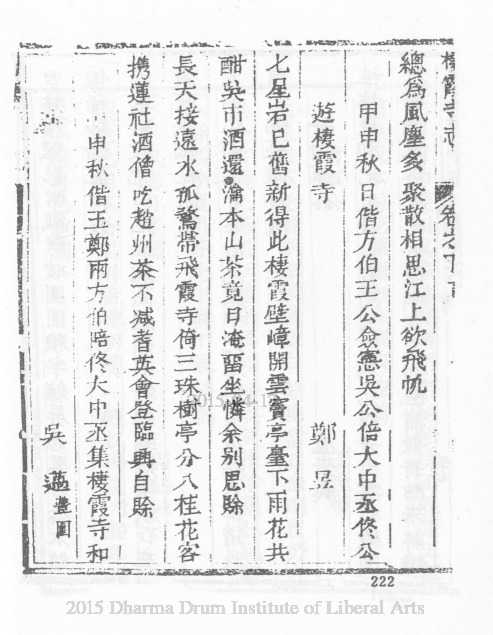 棲霞寺志 卷之下
總為風塵多聚散相思江上欲飛帆
甲申秋日偕方伯王公僉憲吳公倍大中丞佟公
遊棲霞寺 鄭昱
七星岩已舊新得此棲霞壁嶂開雲竇亭臺下雨花共
酣吳市酒還瀹本山茶竟日淹留坐憐余别思賒
長天接遠水孤鶩帶飛霞寺倚三珠樹亭分八桂花客
携蓮社酒僧吃趙州茶不减耆英會登臨興自賒
申秋偕王鄭兩方伯陪佟大中丞集棲霞寺和
吳薖薑園
222
2015-04-1
2015 Dharma Drum Institute of Liberal Arts